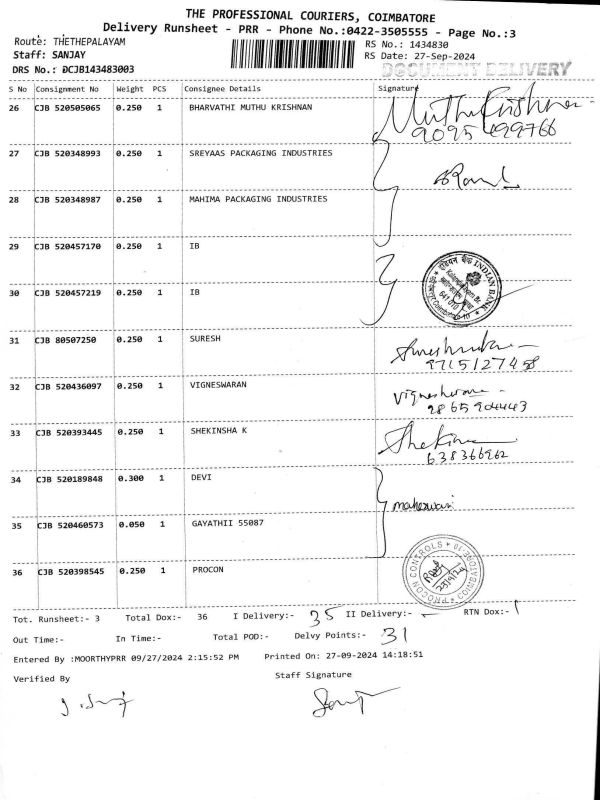 THE PROFESSIONAL COURIERS, COIMBATORE
Delivery Runsheet - PRR - Phone No.:0422-3505555 - Page No.:3
Route: THETHEPALAYAM RS No.: 1434830
Staff: SANJAY RS Date: 27-Sep-2024
DRS No.: DCJB143483003 DOCUMENT DELIVERY
S No Consignment No Weight PCS Consignee Details Signature
26 CJB 520505065 0.250 1 BHARVATHI MUTHU KRISHNAN Muthu Krishnan
9095499766
27 CJB 520348993 0.250 1 SREYAAS PACKAGING INDUSTRIES
28 CJB 520348987 0.250 1 MAHIMA PACKAGING INDUSTRIES
29 CJB 520457170 0.250 1 IB
इंडियन बैंक INDIAN BANK
641 010
30 CJB 520457219 0.250 1 IB
31 CJB 80507250 0.250 1 SURESH
9715127458
32 CJB 520436097 0.250 1 VIGNESWARAN Vigneshwaran
9865904443
33 CJB 520393445 0.250 1 SHEKINSHA K
638366962
34 CJB 520189848 0.300 1 DEVI
maheswari
35 CJB 520460573 0.050 1 GAYATHII 55087
36 CJB 520398545 0.250 1 PROCON
PROCON CONTROLS COIMBATORE-10
Tot. Runsheet:- 3 Total Dox:- 36 I Delivery:- 35 II Delivery:- - RTN Dox:- 1
Out Time:- In Time:- Total POD:- Delvy Points:- 31
Entered By :MOORTHYPRR 09/27/2024 2:15:52 PM Printed On: 27-09-2024 14:18:51
Verified By Staff Signature